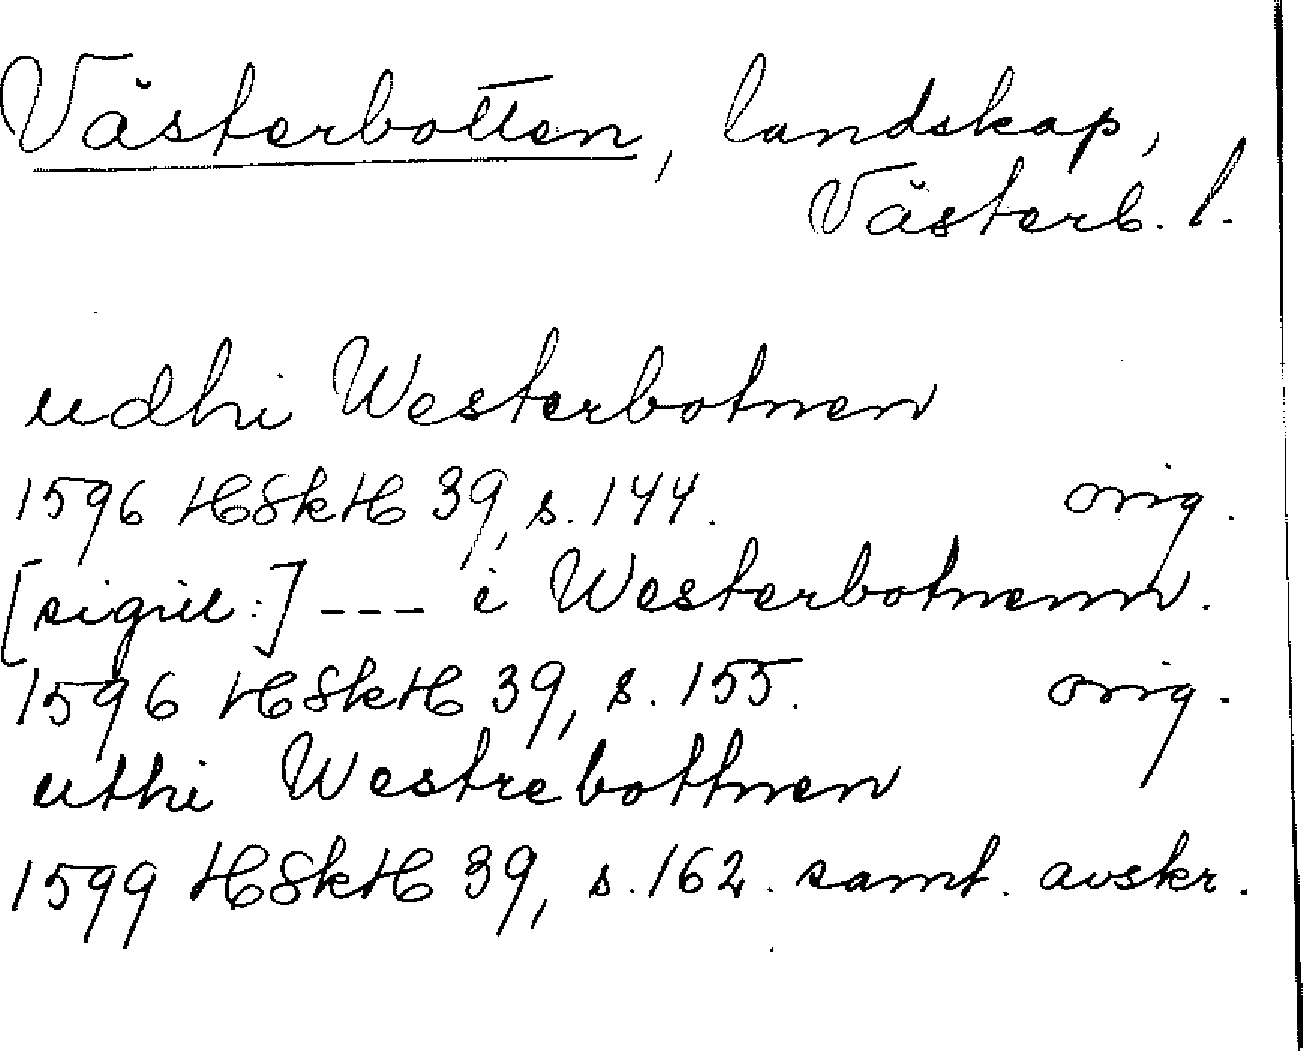 Västerbotten, landskap,
Västerb. l.
udhi Westerbotnen
1596 HSkH 39, s. 144. orig.
[sigill:] --- i Westerbotnenn.
1596 HSkH 39, s. 155. orig.
uthi Westrebottnen
1599 HSkH 39, s. 162. samt. avskr.